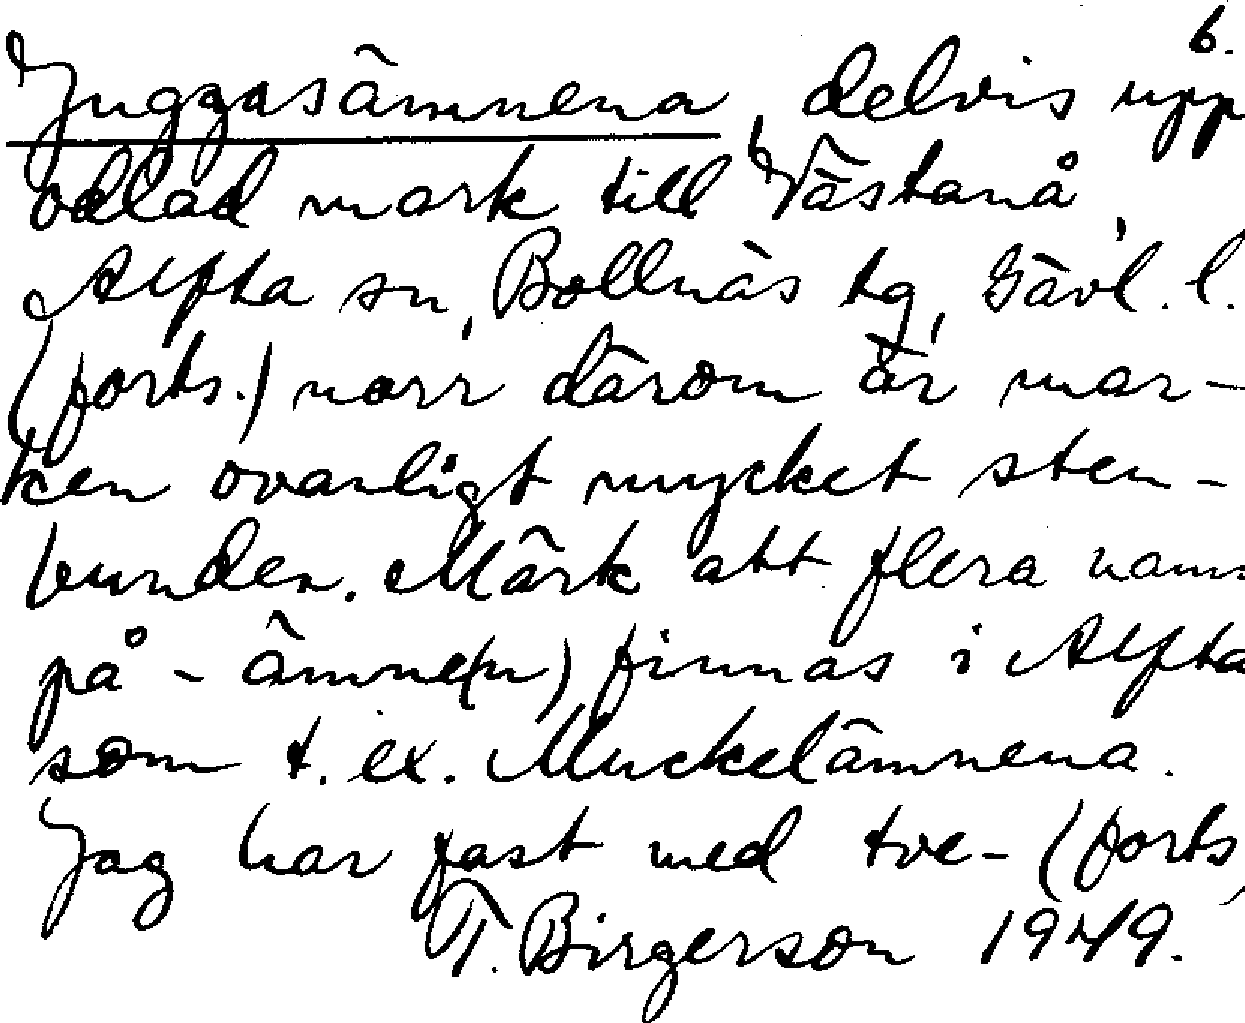 6.
Juggasämnena, delvis upp
odlad mark till Västanå,
Alfta sn, Bollnäs tg, Gävl. l.
(forts.) norr därom är mar-
ken ovanligt mycket sten-
bunden. Märk att flera namn
på -ämne(n) finnas i Alfta
som t. ex. Muckelämnena.
Jag har fast med tve- (forts)
T. Birgerson 1949.